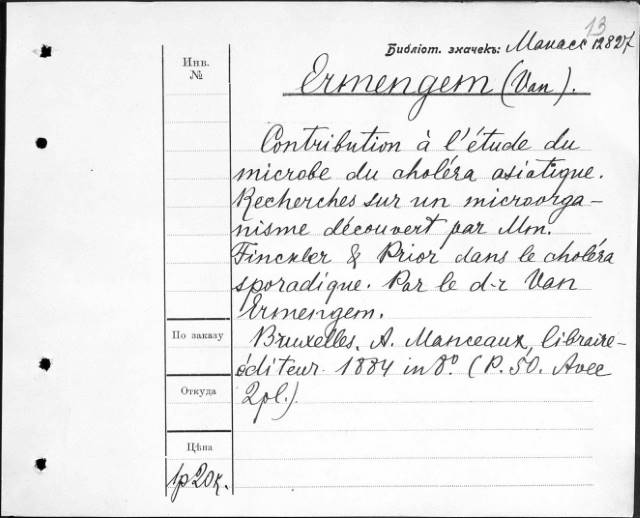 13
Библіот. значекъ: Манасс 12827
Инв.
№
Ermengem (Van).
Contribution à l'étude du
microbe du choléra asiatique.
Recherches sur un microorga-
nisme découvert par Mm.
Finckler & Prior dans le choléra
sporadique. Par le d-r Van
Ermengem.
По заказу
Bruxelles, A. Manceaux, libraire-
éditeur 1884 in 8º. (P. 50. Avec
Откуда
2 pl.).
Цѣна
1р 20к.